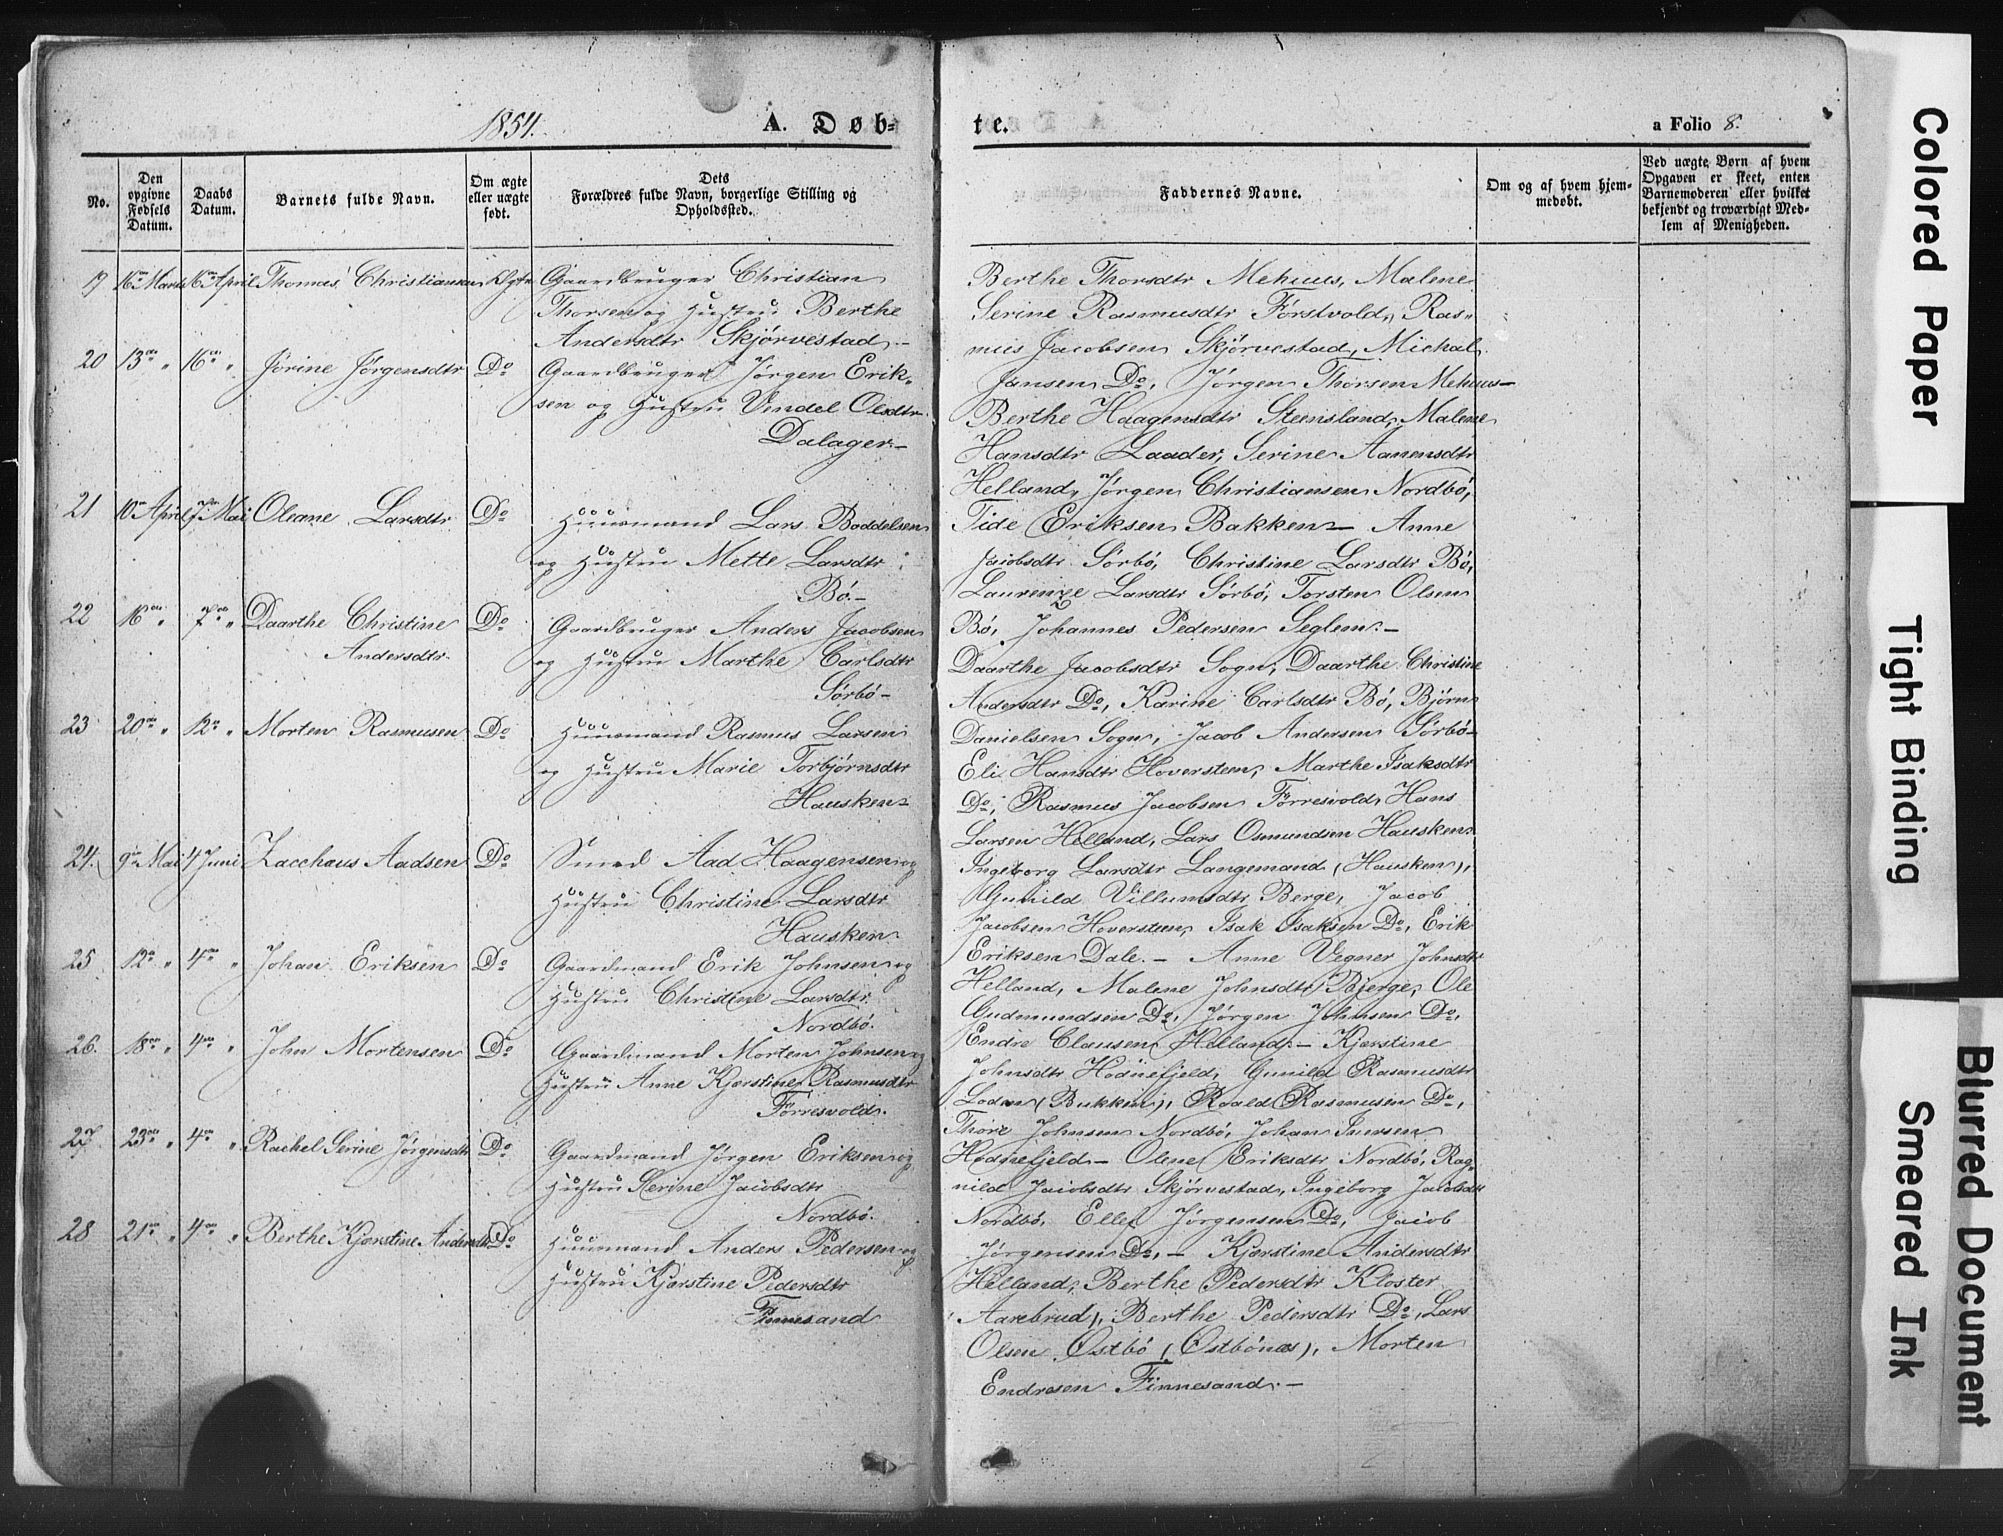 1854.
A. Døb-
te.
a Folio 8.
No.
Den opgivne Fødsels Datum.
Daabs Datum.
Barnets fulde Navn.
Om ægte eller uægte født.
Dets Forældres fulde Navn, borgerlige Stilling og Opholdssted.
Faddernes Navne.
Om og af hvem hjemmedøbt.
Ved uægte Børn af hvem Opgaven er skeet, enten Barnemoderen eller hvilket bekjendt og troværdigt Medlem af Menigheden.
19 16de Marts 16de April Thomas Christiansen Ægte Gaardbruger Christian
Thorsen og Hustru Berthe
Andersdtr Skjørvestad.-
20 13de " 16de " Jørine Jørgensdtr Do Gaardbruger Jørgen Erik-
sen og Hustru Vendel Olsdtr
Dalager.-
21 10de April 7de Mai Oleane Larsdtr Do Huusmand Lars Boddelsen
og Hustru Mette Larsdtr
Bø.-
22 16de " 7de " Daarthe Christine Do Gaardbruger Anders Jacobsen
Andersdtr. og Hustru Marthe Carlsdtr
Sørbø-
23 20de " 12te " Morten Rasmusen Do Huusmand Rasmus Larsen
og Hustru Marie Torbjørnsdtr
Hausken-
24. 9de Mai 4 Juni Zacchæus Aadsen Do Smed Aad Haagensen og
Hustru Christine Larsdtr
Hausken-
25 12te " 4de " Johan Eriksen Do Gaardmand Erik Johnsen og
Hustru Christine Larsdtr.
Nordbø.
26. 18de " 4de " John Mortensen Do Gaardmand Morten Johnsen og
Hustru Anne Kjerstine Rasmusdtr
Førresvold.
27 23de " 4de " Rachel Serine Jørgensdtr Do Gaardmand Jørgen Eriksen og
Hustru Serine Jacobsdtr
Nordbø.
28 21de " 4de " Berthe Kjerstine Andersdtr Do Huusmand Anders Pedersen og
Hustru Kjerstine Pedersdtr
Finnesand
Berthe Thorsdtr Mehuus, Malene
Serine Rasmusdtr Førstvold, Ras-
mus Jacobsen Skjørvestad, Michal
Jansen Do, Jørgen Thorsen Mehuus-
Berthe Haagensdtr Steensland, Malene
Hansdtr Laader, Serine Aanensdtr
Helland, Jørgen Christiansen Nordbø,
Tide Eriksen Bakken- Anne
Jacobsdtr Sørbø, Christine Larsdtr Bø,
Laurenze Larsdtr Sørbø, Torsten Olsen
Bø, Johannes Pedersen Seglem.-
Daarthe Jacobsdtr Sogn, Daarthe Christine
Andersdtr Do, Karine Carlsdtr Bø, Bjørn
Danielsen Sogn, Jacob Andersen Sørbø-
Eli Hansdtr Hoversteen, Marthe Isaksdtr
Do, Rasmus Jacobsen Førresvold, Hans
Larsen Helland, Lars Osmundsen Hausken-
Ingeborg Larsdtr Langemand (Hausken),
Gunild Villumsdtr Berge, Jacob
Jacobsen Hoversteen, Isak Isaksen Do, Erik
Eriksen Dale.- Anne Vegner Johnsdtr
Helland, Malene Johnsdtr Bjerge, Ole
Gudmundsen Do, Jørgen Johnsen Do,
Endre Clausen Helland.- Kjerstine
Johnsdtr Hodnefjeld, Gunild Rasmusdtr
Loden (Bukken), Roald Rasmusen Do,
Thore Johnsen Nordbø, Johan Iversen
Hodnefjeld- Olene Eriksdtr Nordbø, Rag-
nild Jacobsdtr Skjørvestad, Ingeborg Jacobsdtr
Nordbø, Ellef Jørgensen Do, Jacob
Jørgensen Do,- Kjerstine Andersdtr
Helland, Berthe Pedersdtr Kloster
Aarebrud), Berthe Pedersdtr Do, Lars
Olsen Østbø (Østbønæs), Morten
Endresen Finnesand.-
Colored Paper
Tight Binding
Blurred Document
Smeared Ink